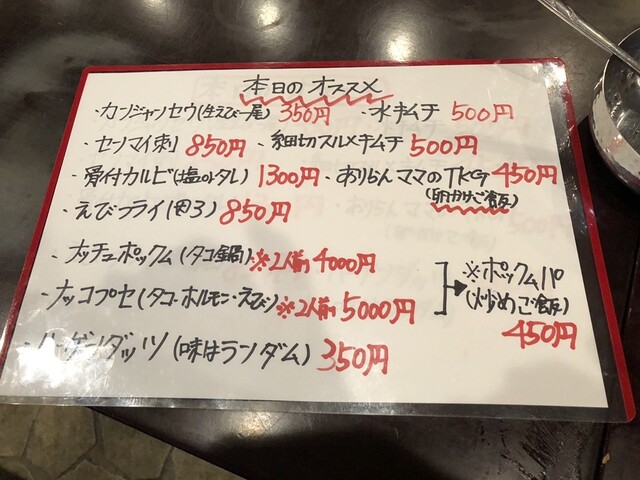 本日のオススメ
・カンジャンセウ(生えび一尾) 350円 ・水キムチ 500円
・センマイ刺 850円 ・細切スルメキムチ 500円
・骨付カルビ(塩orタレ) 1300円 ・おりらんママのTKG 450円
(卵かけご飯)
・えびフライ(肉3) 850円
・ナッチュポックム(タコ鍋)※2人前 4000円
・ナッコプセ(タコ・ホルモン・えび)※2人前 5000円
※ポックムパ
(炒めご飯)
450円
・ハーゲンダッツ(味はランダム) 350円